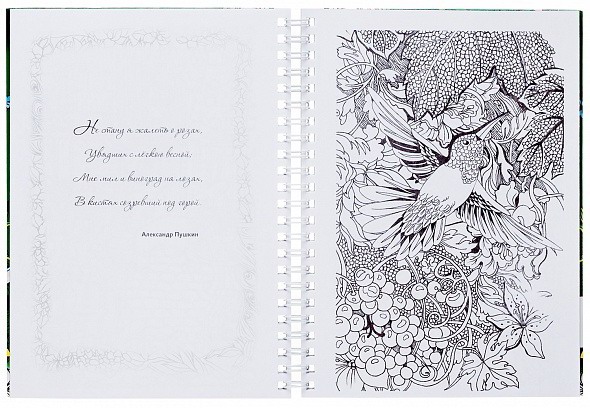 Не стану я жалеть о розах,
Увядших с легкою весной;
Мне мил и виноград на лозах,
В кистях созревший под горой.
Александр Пушкин